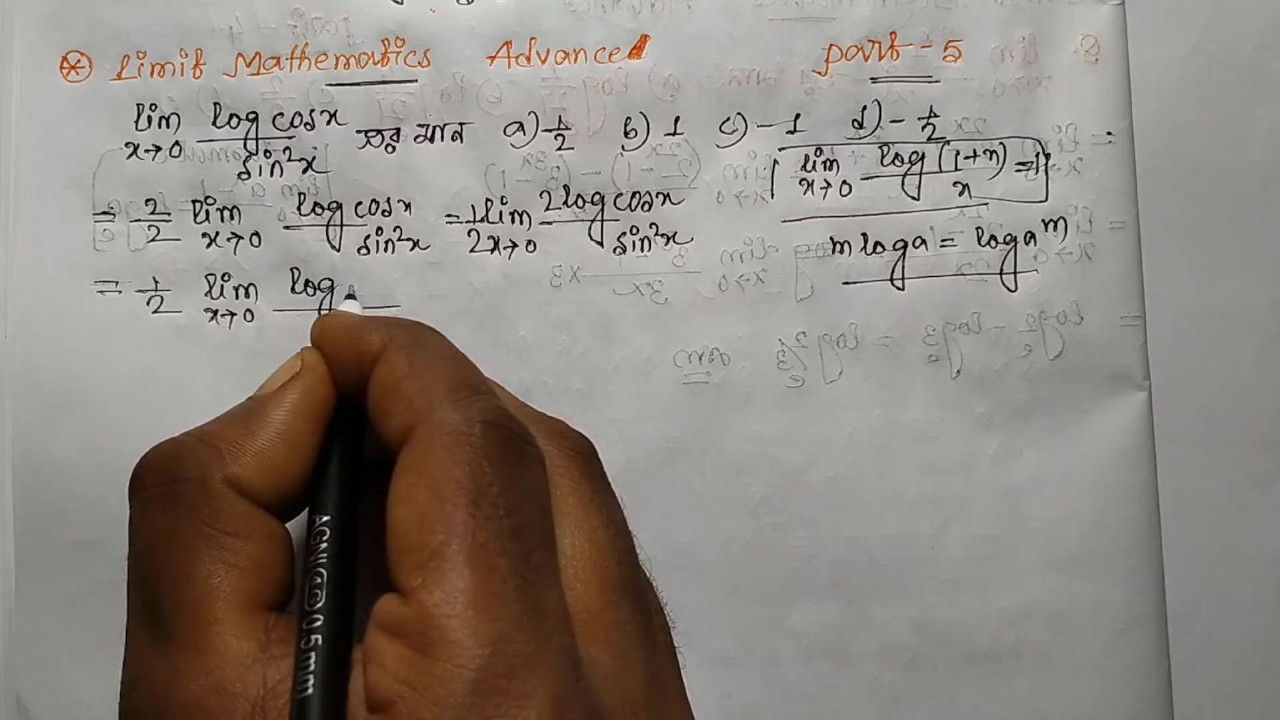 ⊛ Limit Mathematics Advance part-5
lim x→0 log cosx / sin²x এর মান a) 1/2 b) 1 c) -1 d) -1/2
lim x→0 log(1+x) / x = 1
= 2/2 lim x→0 log cosx / sin²x = 1/2 lim x→0 2 log cosx / sin²x
m log a = log a^m
= 1/2 lim x→0 log
AGNI 0.5mm